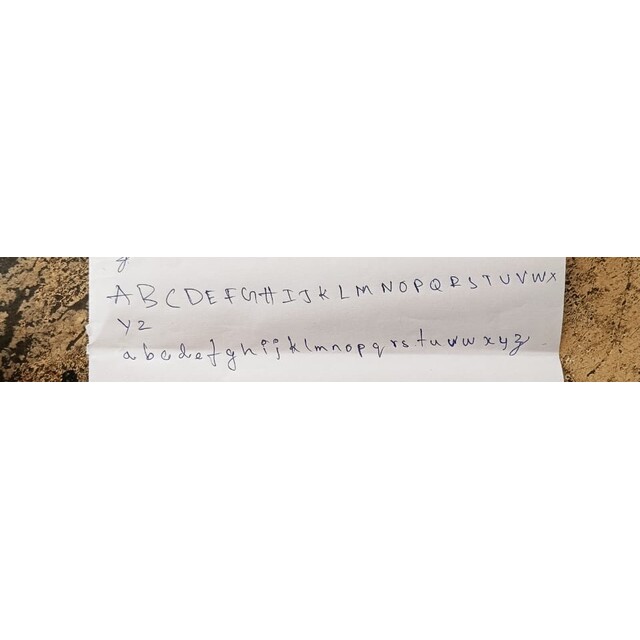 A B C D E F G H I J K L M N O P Q R S T U V W X
Y Z
a b c d e f g h i j k l m n o p q r s t u v w x y z